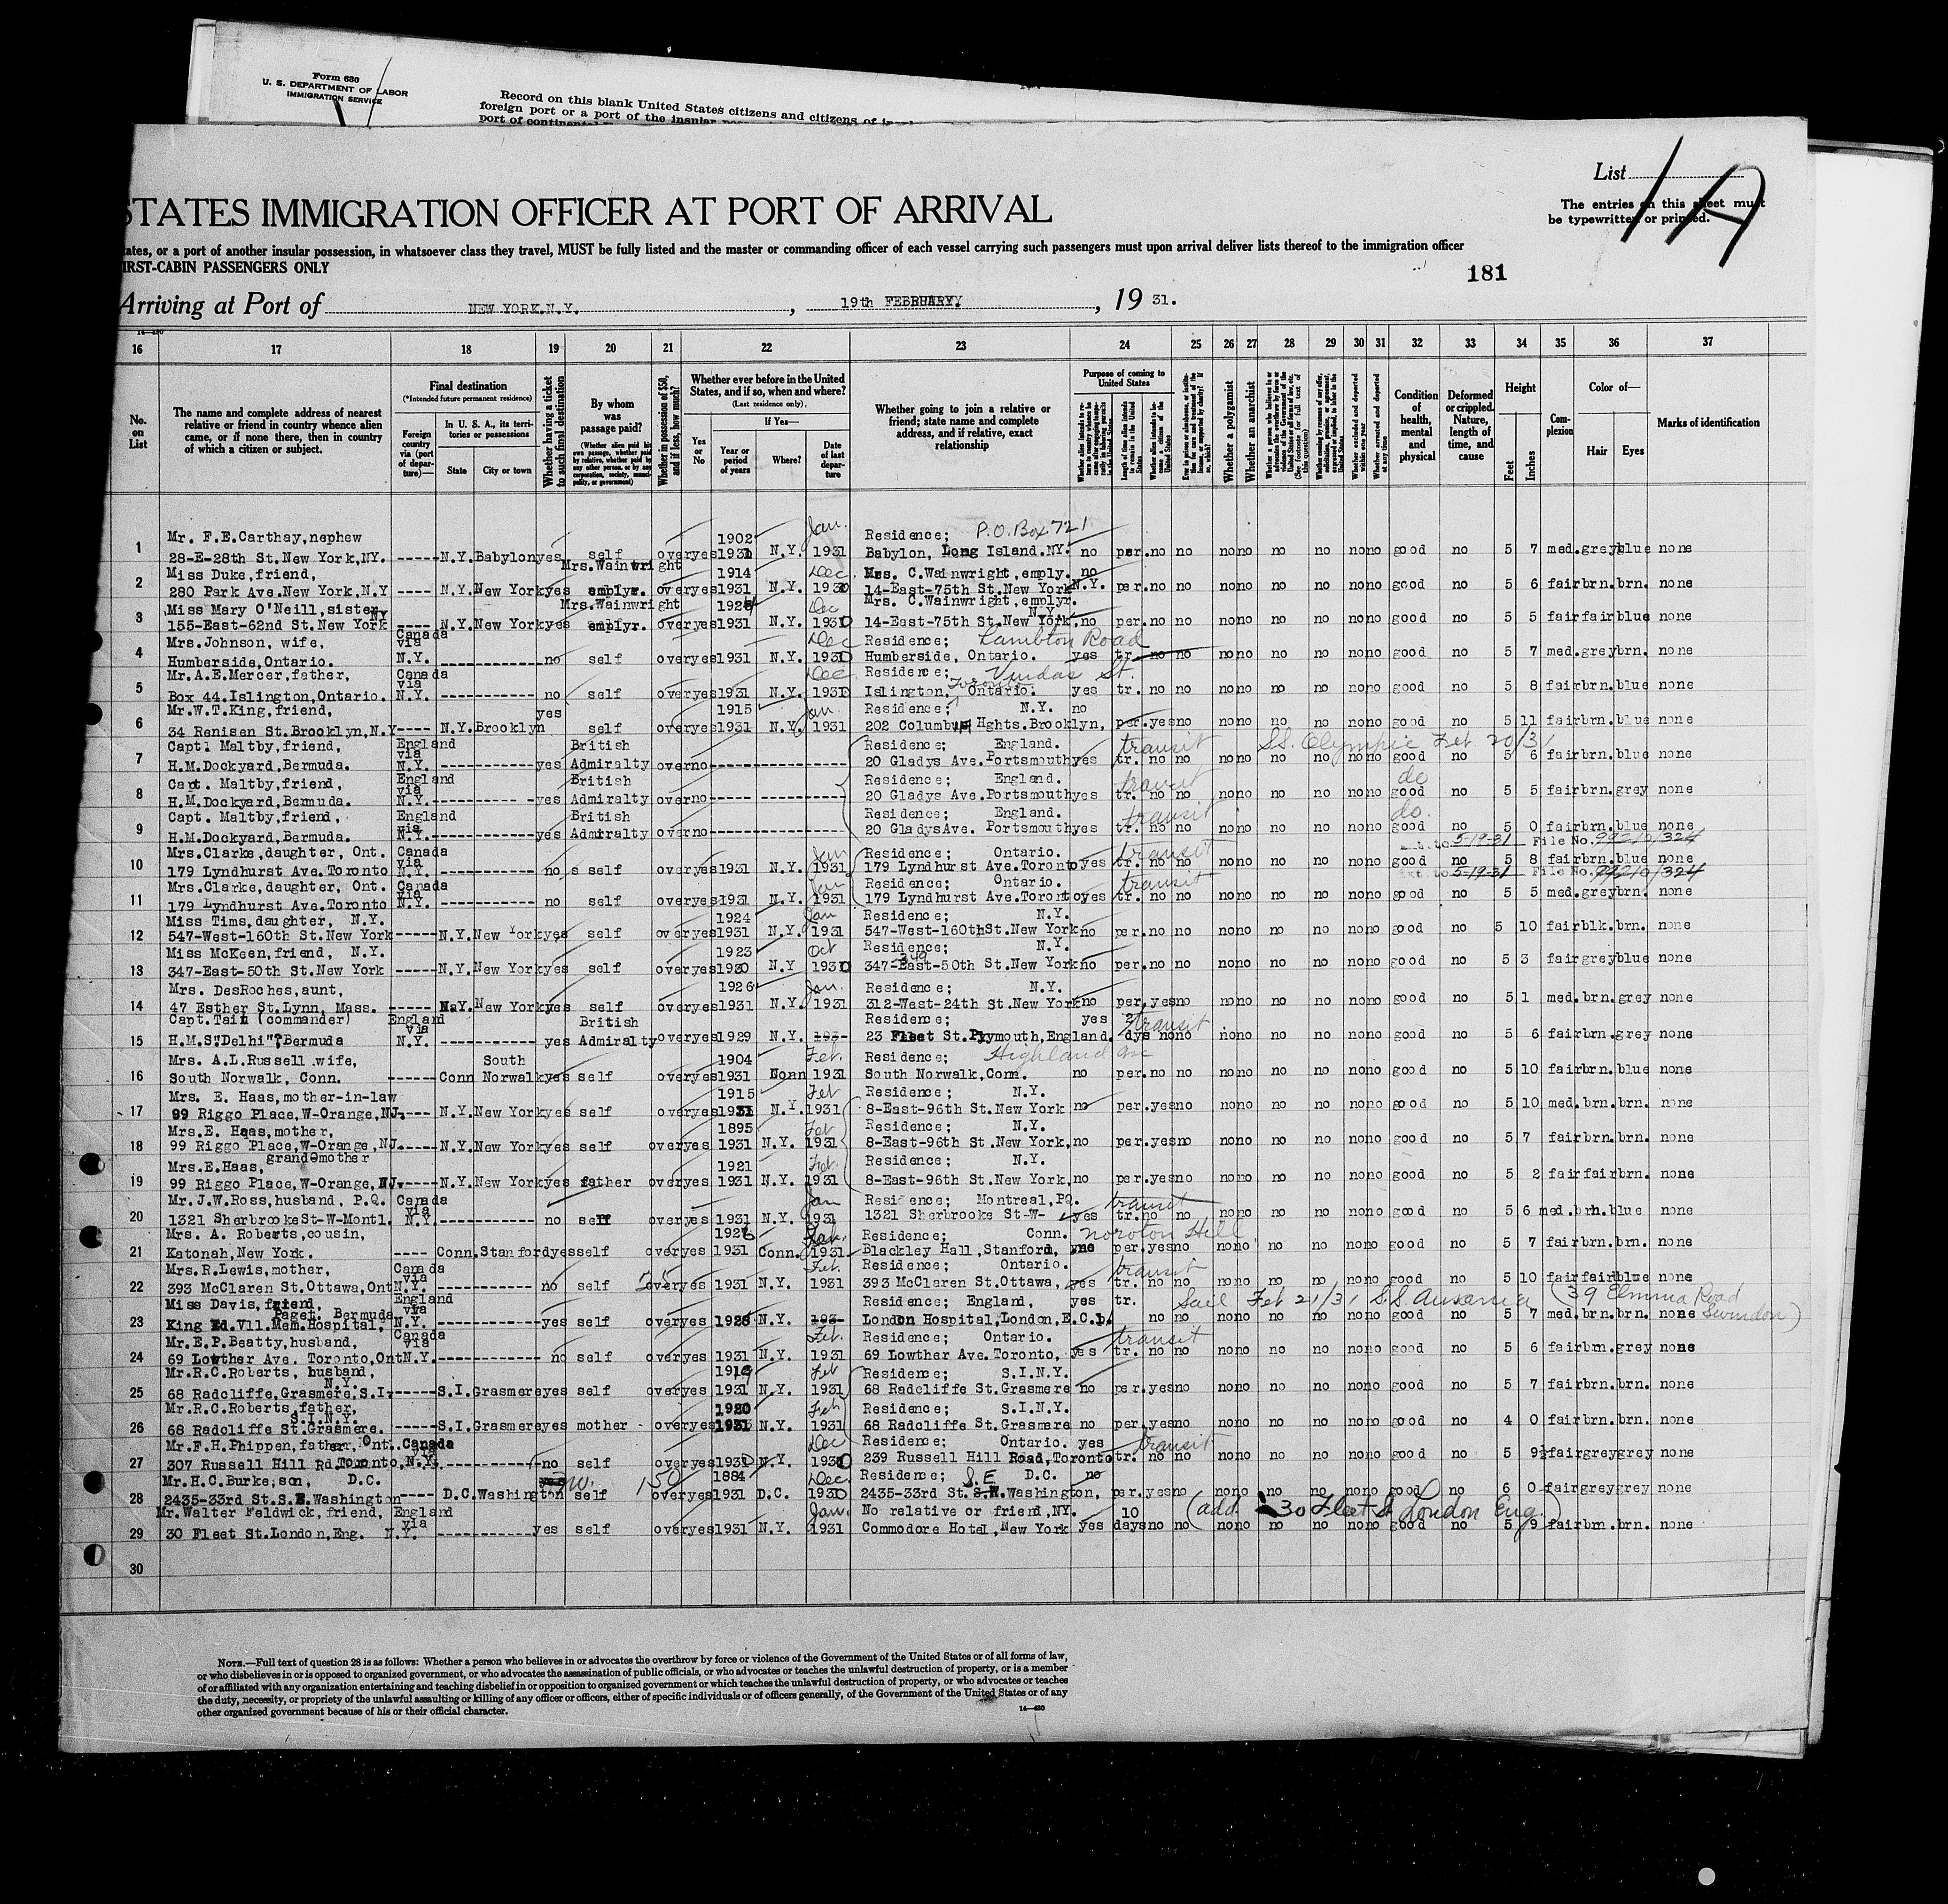 Form 630
U. S. DEPARTMENT OF LABOR
IMMIGRATION SERVICE
Record on this blank United States citizens and citizens of
foreign port or a port of the insular
port of continental
List 1A
The entries on this sheet must
be typewritten or printed.
STATES IMMIGRATION OFFICER AT PORT OF ARRIVAL
tates, or a port of another insular possession, in whatsoever class they travel, MUST be fully listed and the master or commanding officer of each vessel carrying such passengers must upon arrival deliver lists thereof to the immigration officer
IRST-CABIN PASSENGERS ONLY
181
Arriving at Port of NEW YORK.N.Y. , 19th FEBRUARY. , 19 31.
14—430
16 17 18 19 20 21 22 23 24 25 26 27 28 29 30 31 32 33 34 35 36 37
No. on List
The name and complete address of nearest relative or friend in country whence alien came, or if none there, then in country of which a citizen or subject.
Final destination
(*Intended future permanent residence)
Foreign country via (port of departure)—
In U. S. A., its territories or possessions
State
City or town
Whether having a ticket to such final destination
By whom was passage paid?
(Whether alien paid his own passage, whether paid by relative, whether paid by any other person, or by any corporation, society, municipality, or government)
Whether in possession of $50, and if less, how much?
Whether ever before in the United States, and if so, when and where?
(Last residence only)
Yes or No
If Yes—
Year or period of years
Where?
Date of last departure
Whether going to join a relative or friend; state name and complete address, and if relative, exact relationship
Purpose of coming to United States
Length of time alien intends to remain in the United States
Whether a polygamist
Whether an anarchist
Condition of health, mental and physical
Deformed or crippled. Nature, length of time, and cause
Height
Feet
Inches
Complexion
Color of—
Hair
Eyes
Marks of identification
Mr. F.E.Carthay,nephew 1902 Jan. Residence; P.O. Box 721
1 28-E-28th St.New York,NY. -----N.Y.Babylon yes self over yes 1931 N.Y. 1931 Babylon, Long Island.NY. no per.no no no no no no no no good no 5 7 med.grey blue none
Miss Duke,friend, Mrs.Wainwright 1914 Dec. Mrs. C.Wainwright,emply. no
2 280 Park Ave.New York,N.Y ---- N.Y.New York yes emplyr. over yes 1931 N.Y. 1930 14-East-75th St.New York N.Y. per.no no no no no no no no good no 5 6 fair brn.brn. none
Miss Mary O'Neill,sister, NY Mrs.Wainwright Dec Mrs. C.Wainwright,emplyr. N.Y.
3 155-East-62nd St.New York ---- N.Y.New York yes emplyr. over yes 1931 N.Y. 1930 14-East-75th St.New York. no per.no no no no no no no no good no 5 5 fair fair blue none
Mrs.Johnson, wife, Canada via Dec Residence; Lambton Road
4 Humberside,Ontario. N.Y. ------------ no self over yes 1931 N.Y. 1930 Humberside, Ontario. yes tr. no no no no no no no no good no 5 7 med.grey brn. none
Mr.A.E.Mercer,father, Canada via Dec Residence; Dundas St.
5 Box 44.Islington,Ontario. N.Y. ------------ no self over yes 1931 N.Y. 1930 Islington, Ontario. Toronto yes tr. no no no no no no no no good no 5 8 fair brn.blue none
Mr.W.T.King,friend, yes 1915 Jan. Residence; N.Y. no
6 34 Renisen St.Brooklyn,N.Y---- N.Y.Brooklyn self over yes 1931 N.Y. 1931 202 Columbia Hghts.Brooklyn, per.yes no no no no no no no good no 5 11 fair brn.blue none
Capt. Maltby,friend, England via British Residence; England. transit S.S. Olympic Feb 20/31
7 H.M.Dockyard,Bermuda. N.Y. ------------ yes Admiralty over no--------------- 20 Gladys Ave.Portsmouth yes tr. no no no no no no no no good no 5 6 fair brn.blue none
Capt. Maltby,friend, England via British Residence; England. transit do
8 H.M.Dockyard,Bermuda. N.Y.---------- -yes Admiralty over no--------------- 20 Gladys Ave.Portsmouth yes tr. no no no no no no no no good no 5 5 fair brn.grey none
Capt. Maltby,friend, England via British Residence; England. transit do.
9 H.M.Dockyard,Bermuda. N.Y.------------ yes Admiralty over no--------------- 20 GladysAve. Portsmouth yes tr. no no no no no no no no good no 5 0 fair brn.blue none
5-19-31 File No. 99210/324
Mrs.Clarke,daughter, Ont. Canada via Jan Residence; Ontario. transit
10 179 Lyndhurst Ave.Toronto N.Y. ------------ no s self over yes 1931 N.Y. 1931 179 Lyndhur st Ave.Toronto yes tr. no no no no no no no no good no 5 8 fair brn.blue none
5-19-31 File No. 99210/324
Mrs.Clarke,daughter, Ont. Canada Jan Residence; Ontario. transit
11 179 Lyndhurst Ave.Toronto N.Y. ------------ no self over yes 1931 N.Y. 1931 179 Lyndhurst Ave.Toronto yes tr. no no no no no no no no good no 5 5 med.grey brn. none
Miss Tims,daughter, N.Y. 1924 Jan Residence; N.Y.
12 547-West-160th St.New York-----N.Y.New York yes self over yes 1931 N.Y. 1931 547-West-160th St.New York no per.no no no no no no no no good no 5 10 fair blk.brn. none
Miss McKeen,friend, N.Y. 1923 Oct Residence; N.Y.
13 347-East-50th St.New York -----N.Y.New York yes self over yes 1930 N.Y 1930 347-East-50th St.New York no per.no no no no no no no no good no 5 3 fair grey blue none
Mrs. DesRoches,aunt, 1926 Jan. Residence; N.Y.
14 47 Esther St.Lynn, Mass. ----- N.Y.New York yes self over yes 1931 N.Y. 1931 312-West-24th St.New York no per.yes no no no no no no no good no 5 1 med.brn.grey none
Capt.Tait (commander) England via British Residence; yes 2 transit
15 H.M.S"Delhi" Bermuda N.Y. ------------ yes Admiralty over yes 1929 N.Y. 23 Fleet St.Plymouth,England. dys no no no no no no no no good no 5 6 fair brn.grey none
Mrs. A.L.Russell,wife, South 1904 Feb. Residence; Highland Ave
16 South Norwalk, Conn. -----Conn Norwalk yes self over yes 1931 Conn 1931 South Norwalk,Conn. no per.no no no no no no no no good no 5 10 fair brn.blue none
Mrs. E. Haas,mother-in-law 1915 Feb Residence; N.Y.
17 99 Riggo Place,W-Orange,NJ.---- N.Y.New York yes self over yes 1931 N.Y. 1931 8-East-96th St.New York no per.yes no no no no no no no good no 5 10 med.brn.brn. none
Mrs.E. Haas,mother, 1895 Feb Residence; N.Y.
18 99 Riggo Place,W-Orange,NJ.-----N.Y.New York yes self over yes 1931 N.Y. 1931 8-East-96th St.New York, no per.yes no no no no no no no good no 5 7 fair brn.brn. none
Mrs.E.Haas, grandmother 1921 Feb. Residence; N.Y.
19 99 Riggo Place,W-Orange,NJ.-----N.Y.New York yes father over yes 1931 N.Y. 1931 8-East-96th St.New York, no per.yes no no no no no no no good no 5 2 fair fair brn. none
Mr.J.W.Ross,husband, P.Q. Canada via Jan Residence; Montreal,PQ. transit
20 1321 SherbrookeSt-W-Montl. N.Y.------------ no self over yes 1931 N.Y. 1931 1321 Sherbrooke St-W- yes tr.no no no no no no no no good no 5 6 med.brn.blue none
Mrs. A. Roberts,cousin, Jan. Residence; Conn. Noroton Hill
21 Katonah,New York. ---- Conn.Stanford yes self over yes 1931 Conn. 1931 Blackley Hall,Stanford, no per.yes no no no no no no no good no 5 7 fair brn.brn. none
Mrs.R.Lewis,mother, Canada via Feb. Residence; Ontario. transit
22 393 McClaren St.Ottawa,Ont N.Y.----------- no self over yes 1931 N.Y. 1931 393 McClaren St.Ottawa, yes tr. no no no no no no no no good no 5 10 fair fair blue none
Miss Davis,friend, Paget. Bermuda England via Residence; England, yes tr. Sail Feb 21/31 SS Ausonia (39 Elmina Road Swindon)
23 King Ed.Vll.Mem.Hospital, N.Y.------------ yes self over yes 1928 N.Y. London Hospital,London,E.C.1. no no no no no no no no good no 5 7 med.brn.brn. none
Mr.E.P.Beatty,husband, Canada via Feb. Residence; Ontario. transit
24 69 Lowther Ave. Toronto,Ont N.Y.------------ no self over yes 1931 N.Y. 1931 69 Lowther Ave.Toronto, yes tr. no no no no no no no no good no 5 6 fair brn.grey none
Mr.R.C.Roberts, husband, N.Y. Feb Residence; S.I.NY.
25 68 Radcliffe,Grasmere,S.I.------S.I.Grasmere yes self over yes 1931 N.Y. 1931 68 Radcliffe St.Grasmere no per.yes no no no no no no no good no 5 7 fair brn.brn. none
Mr.R.C.Roberts,father, S.I.N.Y. 1920 Feb Residence; S.I.NY.
26 68 Radcliffe St.Grasmere. -----S.I.Grasmere yes mother over yes 1931 N.Y. 1931 68 Radcliffe St.Grasmere no per.yes no no no no no no no good no 4 0 fair brn.brn. none
Mr.F.H.Phippen,father, Ont. Canada via Dec Residence; Ontario. yes transit
27 307 Russell Hill Rd.Toronto, N.Y.----------- no self over yes 1930 N.Y. 1930 239 Russell Hill Road,Toronto tr. no no no no no no no no good no 5 9½ fair grey grey none
Mr.H.C.Burke,son, D.C. no. 150 1884 Dec. Residence; S.E D.C. no
28 2435-33rd St.S.E.Washington---- D.C.Washington self over yes 1931 D.C. 1930 2435-33rd St. Washington, per.yes no no no no no no no good no 6 0 fair grey grey none
Mr.Walter Feldwick,friend, England via Jan. No relative or friend,NY. 10 (add. 30 Fleet St London Eng.)
29 30 Fleet St.London,Eng. N.Y. yes self over yes 1931 N.Y. 1931 Commodore Hotel,New York yes days no no no no no no no no good no 5 9 fair brn.brn. none
30
NOTE.—Full text of question 28 is as follows: Whether a person who believes in or advocates the overthrow by force or violence of the Government of the United States or of all forms of law,
or who disbelieves in or is opposed to organized government, or who advocates the assassination of public officials, or who advocates or teaches the unlawful destruction of property, or is a member
of or affiliated with any organization entertaining and teaching disbelief in or opposition to organized government or which teaches the unlawful destruction of property, or who advocates or teaches
the duty, necessity, or propriety of the unlawful assaulting or killing of any officer or officers, either of specific individuals or of officers generally, of the Government of the United States or of any
other organized government because of his or their official character.
14—430